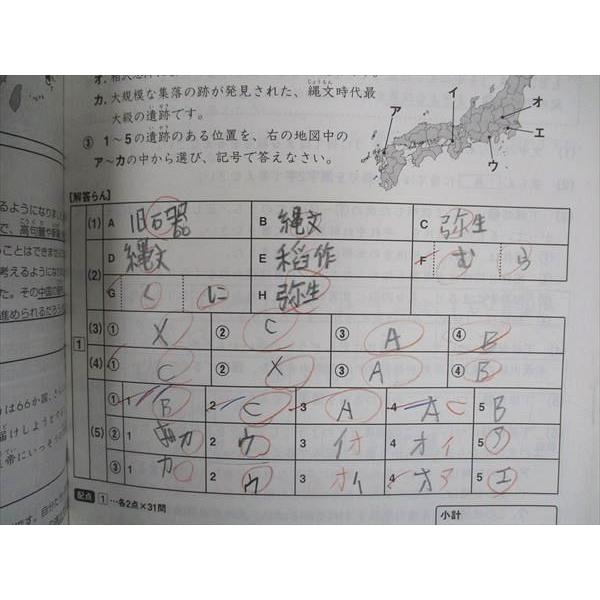 カ. 大規模な集落の跡が発見された、縄文時代最
大級の遺跡です。
③ 1～5の遺跡のある位置を、右の地図中の
ア～カの中から選び、記号で答えなさい。
ア イ オ エ ウ
[解答らん]
1
(1) A 旧石器 B 縄文 C 弥生
(2) D 縄文 E 稲作 F むら
G くに H 弥生
(3) ① X ② C ③ A ④ B
(4) ① C ② X ③ A ④ B
(5) ① 1 B 2 C 3 A 4 A C 5 B
② 1 カ 2 ウ 3 イ オ 4 オ イ 5 ア
③ 1 カ 2 ウ 3 オ イ 4 オ ア 5 エ
配点 1…各2点×31問
小計
るようになりまし
で、高句麗や
ことはできま
考えるように
た。その中国の
進められるだろ
は66か国、さ
届けしようと
帝にいっそう